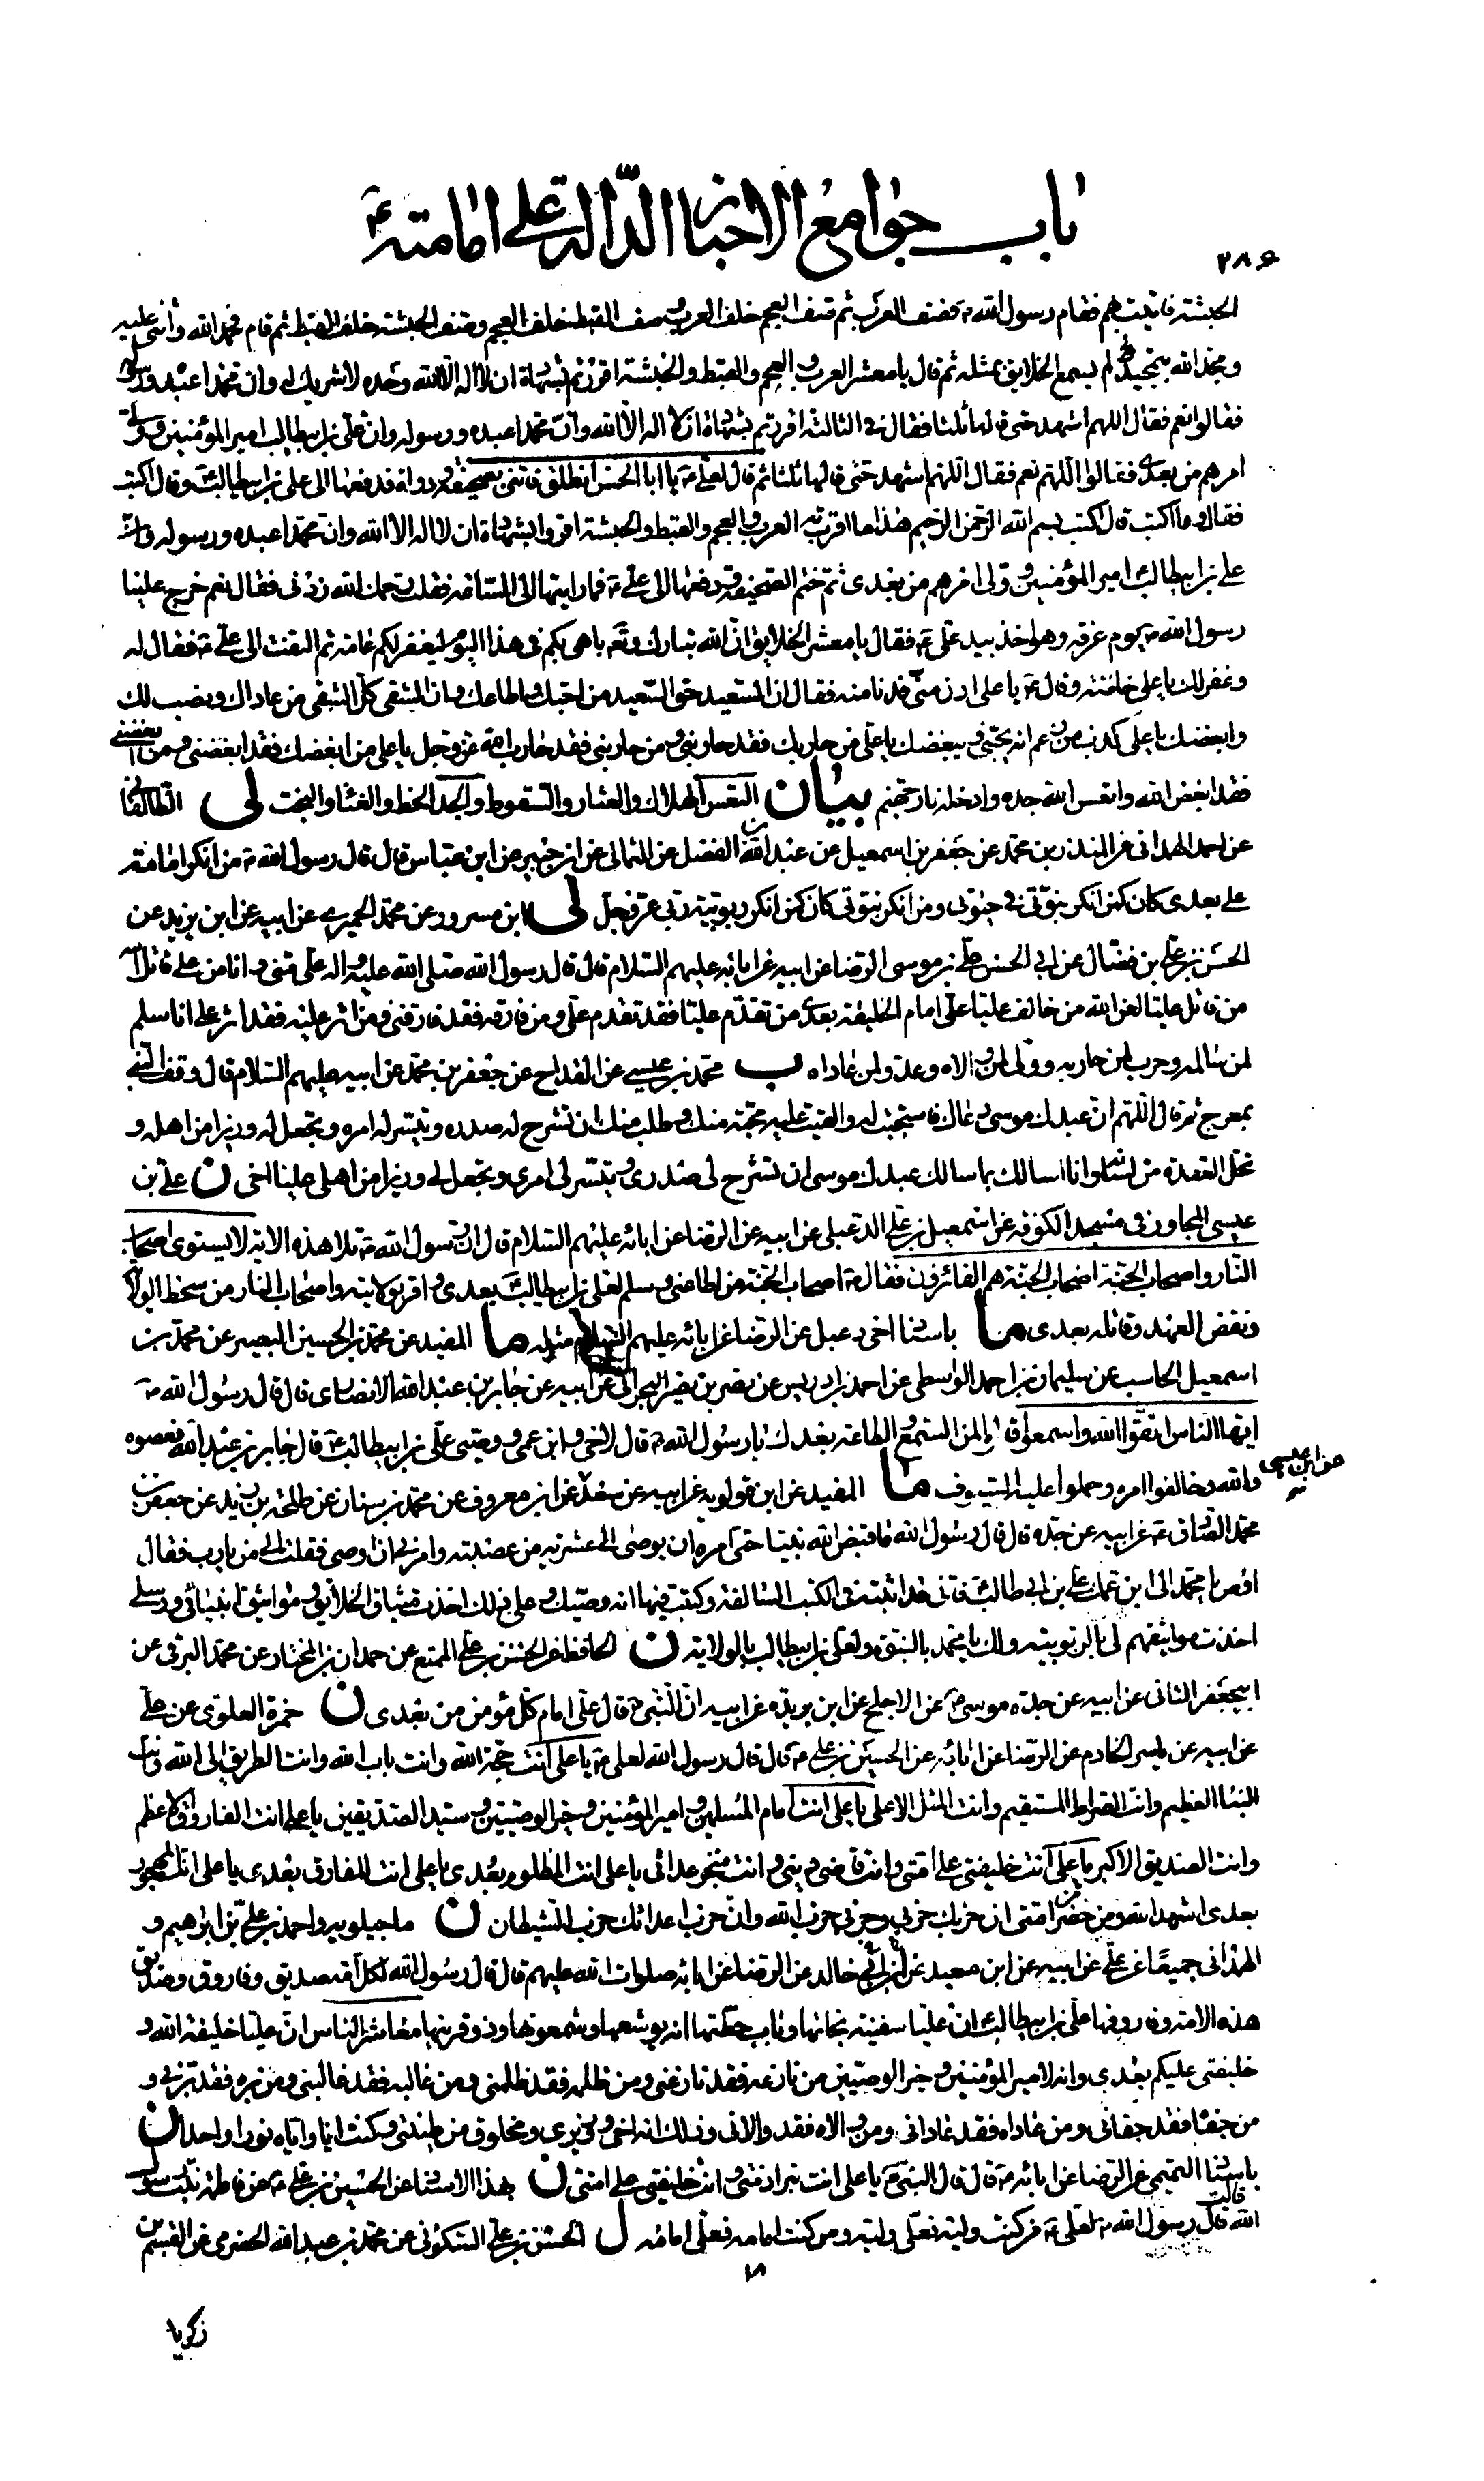 باب جوامع الاخبار الدالة على امامته ع
٢٨٦
الحبشة فاتيت بهم فقام رسول الله ص فصف العرب ثم صف العجم خلف العرب وصف القبط خلف العجم وصف الحبشة خلف القبط ثم قام فحمد الله واثنى عليه
ومجد الله بتمجيد لم يسمع الخلايق بمثله ثم قال يا معشر العرب والعجم والقبط والحبشة اقررتم بشهادة ان لا اله الا الله وحده لا شريك له وان محمدا عبده ورسوله
فقالوا نعم فقال اللهم اشهد حتى قالها ثلثا فقال في الثالثة اقررتم بشهادة ان لا اله الا الله وان محمدا عبده ورسوله وان علي بن ابيطالب امير المؤمنين وولي
امرهم من بعدي فقالوا اللهم نعم فقال اللهم اشهد حتى قالها ثلثا ثم قال لعلي ع يا ابا الحسن انطلق فاتني بصحيفة ودواة فدفعها الى علي بن ابيطالب ع وقال اكتب
فقال وما اكتب قال اكتب بسم الله الرحمن الرحيم هذا ما اقرت به العرب والعجم والقبط والحبشة اقروا بشهادة ان لا اله الا الله وان محمدا عبده ورسوله وان
علي بن ابيطالب امير المؤمنين وولي امرهم من بعدي ثم ختم الصحيفة ودفعها الى علي ع فما رايتها الى الساعة فقلت رحمك الله زدني فقال نعم خرج علينا
رسول الله ص يوم عرفة وهو اخذ بيد علي ع فقال يا معشر الخلايق ان الله تبارك وتعه باهى بكم في هذا اليوم ليغفر لكم عامة ثم التفت الى علي ع فقال له
وغفر لك يا علي خاصة وقال ع يا علي ادن مني فدنا منه فقال ان السعيد حق السعيد من احبك واطاعك وان الشقي كل الشقي من عاداك ونصب لك
وابغضك يا علي كذب من زعم انه يحبني ويبغضك يا علي من حاربك فقد حاربني ومن حاربني فقد حارب الله عز وجل يا علي من ابغضك فقد ابغضني ومن ابغضني
فقد ابغض الله واتعس الله جده وادخله نار جهنم بيان التعس الهلاك والعثار والسقوط والجد الحظ والغناء والبخت لى الطالقاني
عن احمد الهمداني عن المنذر بن محمد عن جعفر بن اسمعيل عن عبد الله بن الفضل عن الثمالي عن ابن جبير عن ابن عباس قال قال رسول الله ص من انكر امامة
علي بعدي كان كمن انكر نبوتي في حيوتي ومن انكر نبوتي كان كمن انكر ربوبية ربي عز وجل لى ابن مسرور عن محمد الحميري عن ابيه عن ابن يزيد عن
الحسن بن علي بن فضال عن ابي الحسن علي بن موسى الرضا عن ابيه عن ابائه عليهم السلام قال قال رسول الله صلى الله عليه واله علي مني وانا من علي قاتل الله
من قاتل عليا لعن الله من خالف عليا علي امام الخليقة بعدي من تقدم عليا فقد تقدم علي ومن فارقه فقد فارقني ومن اثر عليه فقد اثر علي انا سلم
لمن سالمه وحرب لمن حاربه وولي لمن والاه وعدو لمن عاداه ب محمد بن عيسى عن القداح عن جعفر بن محمد عن ابيه عليهم السلام قال وقف النبي
بمعرج ثم قال اللهم ان عبدك موسى دعاك فاستجبت له والقيت عليه محبة منك وطلب منك ان تشرح له صدره وتيسر له امره وتجعل له وزيرا من اهله و
تحل العقدة من لسانه وانا اسالك بما سالك عبدك موسى ان تشرح لي صدري وتيسر لي امري وتجعل لي وزيرا من اهلي عليا اخي ن علي بن
عيسى المجاور في مسجد الكوفة عن اسمعيل بن علي الدعبلي عن ابيه عن الرضا عن ابائه عليهم السلام قال ان رسول الله ص تلا هذه الاية لا يستوي اصحاب
النار واصحاب الجنة اصحاب الجنة هم الفائزون فقال ص اصحاب الجنة من اطاعني وسلم لعلي بن ابيطالب ع بعدي واقر بولايته واصحاب النار من سخط الولاية
ونقض العهد وقاتله بعدي ما باسناد اخي دعبل عن الرضا عن ابائه عليهم السلام مثله ما المفيد عن محمد بن الحسين البصير عن محمد بن
اسمعيل الحاسب عن سليمان بن احمد الواسطي عن احمد بن ادريس عن نصر بن نصير البحراني عن ابيه عن جابر بن عبد الله الانصاري قال قال رسول الله ص
ايها الناس اتقوا الله واسمعوا قالوا لمن السمع والطاعة بعدك يا رسول الله ص قال لاخي وابن عمي ووصيي علي بن ابيطالب ع قال جابر بن عبد الله فعصوه
والله وخالفوا امره وحملوا عليه السيوف ما المفيد عن ابن قولويه عن ابيه عن سعد عن ابن معروف عن محمد بن سنان عن طلحة بن زيد عن جعفر بن
عن ابن عيسى
محمد الصادق ع عن ابيه عن جده قال قال رسول الله ما قبض الله نبيا حتى امره ان يوصي الى عشيرته من عصبته وامرني ان اوصي فقلت الى من يا رب فقال
اوص يا محمد الى ابن عمك علي بن ابي طالب ع فاني قد اثبته في الكتب السالفة وكتبت فيها انه وصيك وعلى ذلك اخذت ميثاق الخلائق ومواثيق انبيائي ورسلي
اخذت مواثيقهم لي بالربوبية ولك يا محمد بالنبوة ولعلي بن ابيطالب بالولاية ن الحافظ عن الحسن بن علي الممتع عن حمدان بن المختار عن محمد البرقي عن
ابيجعفر الثاني عن ابيه عن جده موسى ع عن الاجلح عن ابن بريده عن ابيه ان النبي ص قال علي امام كل مؤمن من بعدي ن حمزة العلوي عن علي
عن ابيه عن ياسر الخادم عن الرضا عن ابائه عن الحسين بن علي ع قال قال رسول الله لعلي ع يا علي انت حجة الله وانت باب الله وانت الطريق الى الله وانت
النبا العظيم وانت الصراط المستقيم وانت المثل الاعلى يا علي انت امام المسلمين وامير المؤمنين وخير الوصيين وسيد الصديقين يا علي انت الفاروق الاعظم
وانت الصديق الاكبر يا علي انت خليفتي على امتي وانت قاضي ديني وانت منجز عداتي يا علي انت المظلوم بعدي يا علي انت المفارق بعدي يا علي انت المهجور
بعدي اشهد الله ومن حضر من امتي ان حزبك حزبي وحزبي حزب الله وان حزب اعدائك حزب الشيطان ن ماجيلويه واحمد بن علي بن ابراهيم و
الهمداني جميعا عن علي عن ابيه عن ابن معبد عن ابن خالد عن الرضا عن ابائه صلوات الله عليهم قال قال رسول الله لكل امة صديق وفاروق وصديق
هذه الامة وفاروقها علي بن ابيطالب ع ان عليا سفينة نجاتها وباب حطتها انه يوشعها وشمعونها وذو قرنيها معاشر الناس ان عليا خليفة الله و
خليفتي عليكم بعدي وانه لامير المؤمنين وخير الوصيين من نازعه فقد نازعني ومن ظلمه فقد ظلمني ومن غالبه فقد غالبني ومن بره فقد برني و
من جفاه فقد جفاني ومن عاداه فقد عاداني ومن والاه فقد والاني وذلك انه اخي ووزيري ومخلوق من طينتي وكنت انا واياه نورا واحدا ن
باسناد التميمي عن الرضا عن ابائه ع قال قال النبي ص يا علي انت تبرا ذمتي وانت خليفتي على امتي ن بهذا الاسناد عن الحسين بن علي ع عن فاطمة بنت رسول
الله قالت قال رسول الله ص لعلي ع من كنت وليه فعلي وليه ومن كنت امامه فعلي امامه ل الحسن بن علي السكوني عن محمد بن عبد الله الحضرمي عن القسم بن
١٨
زكريا